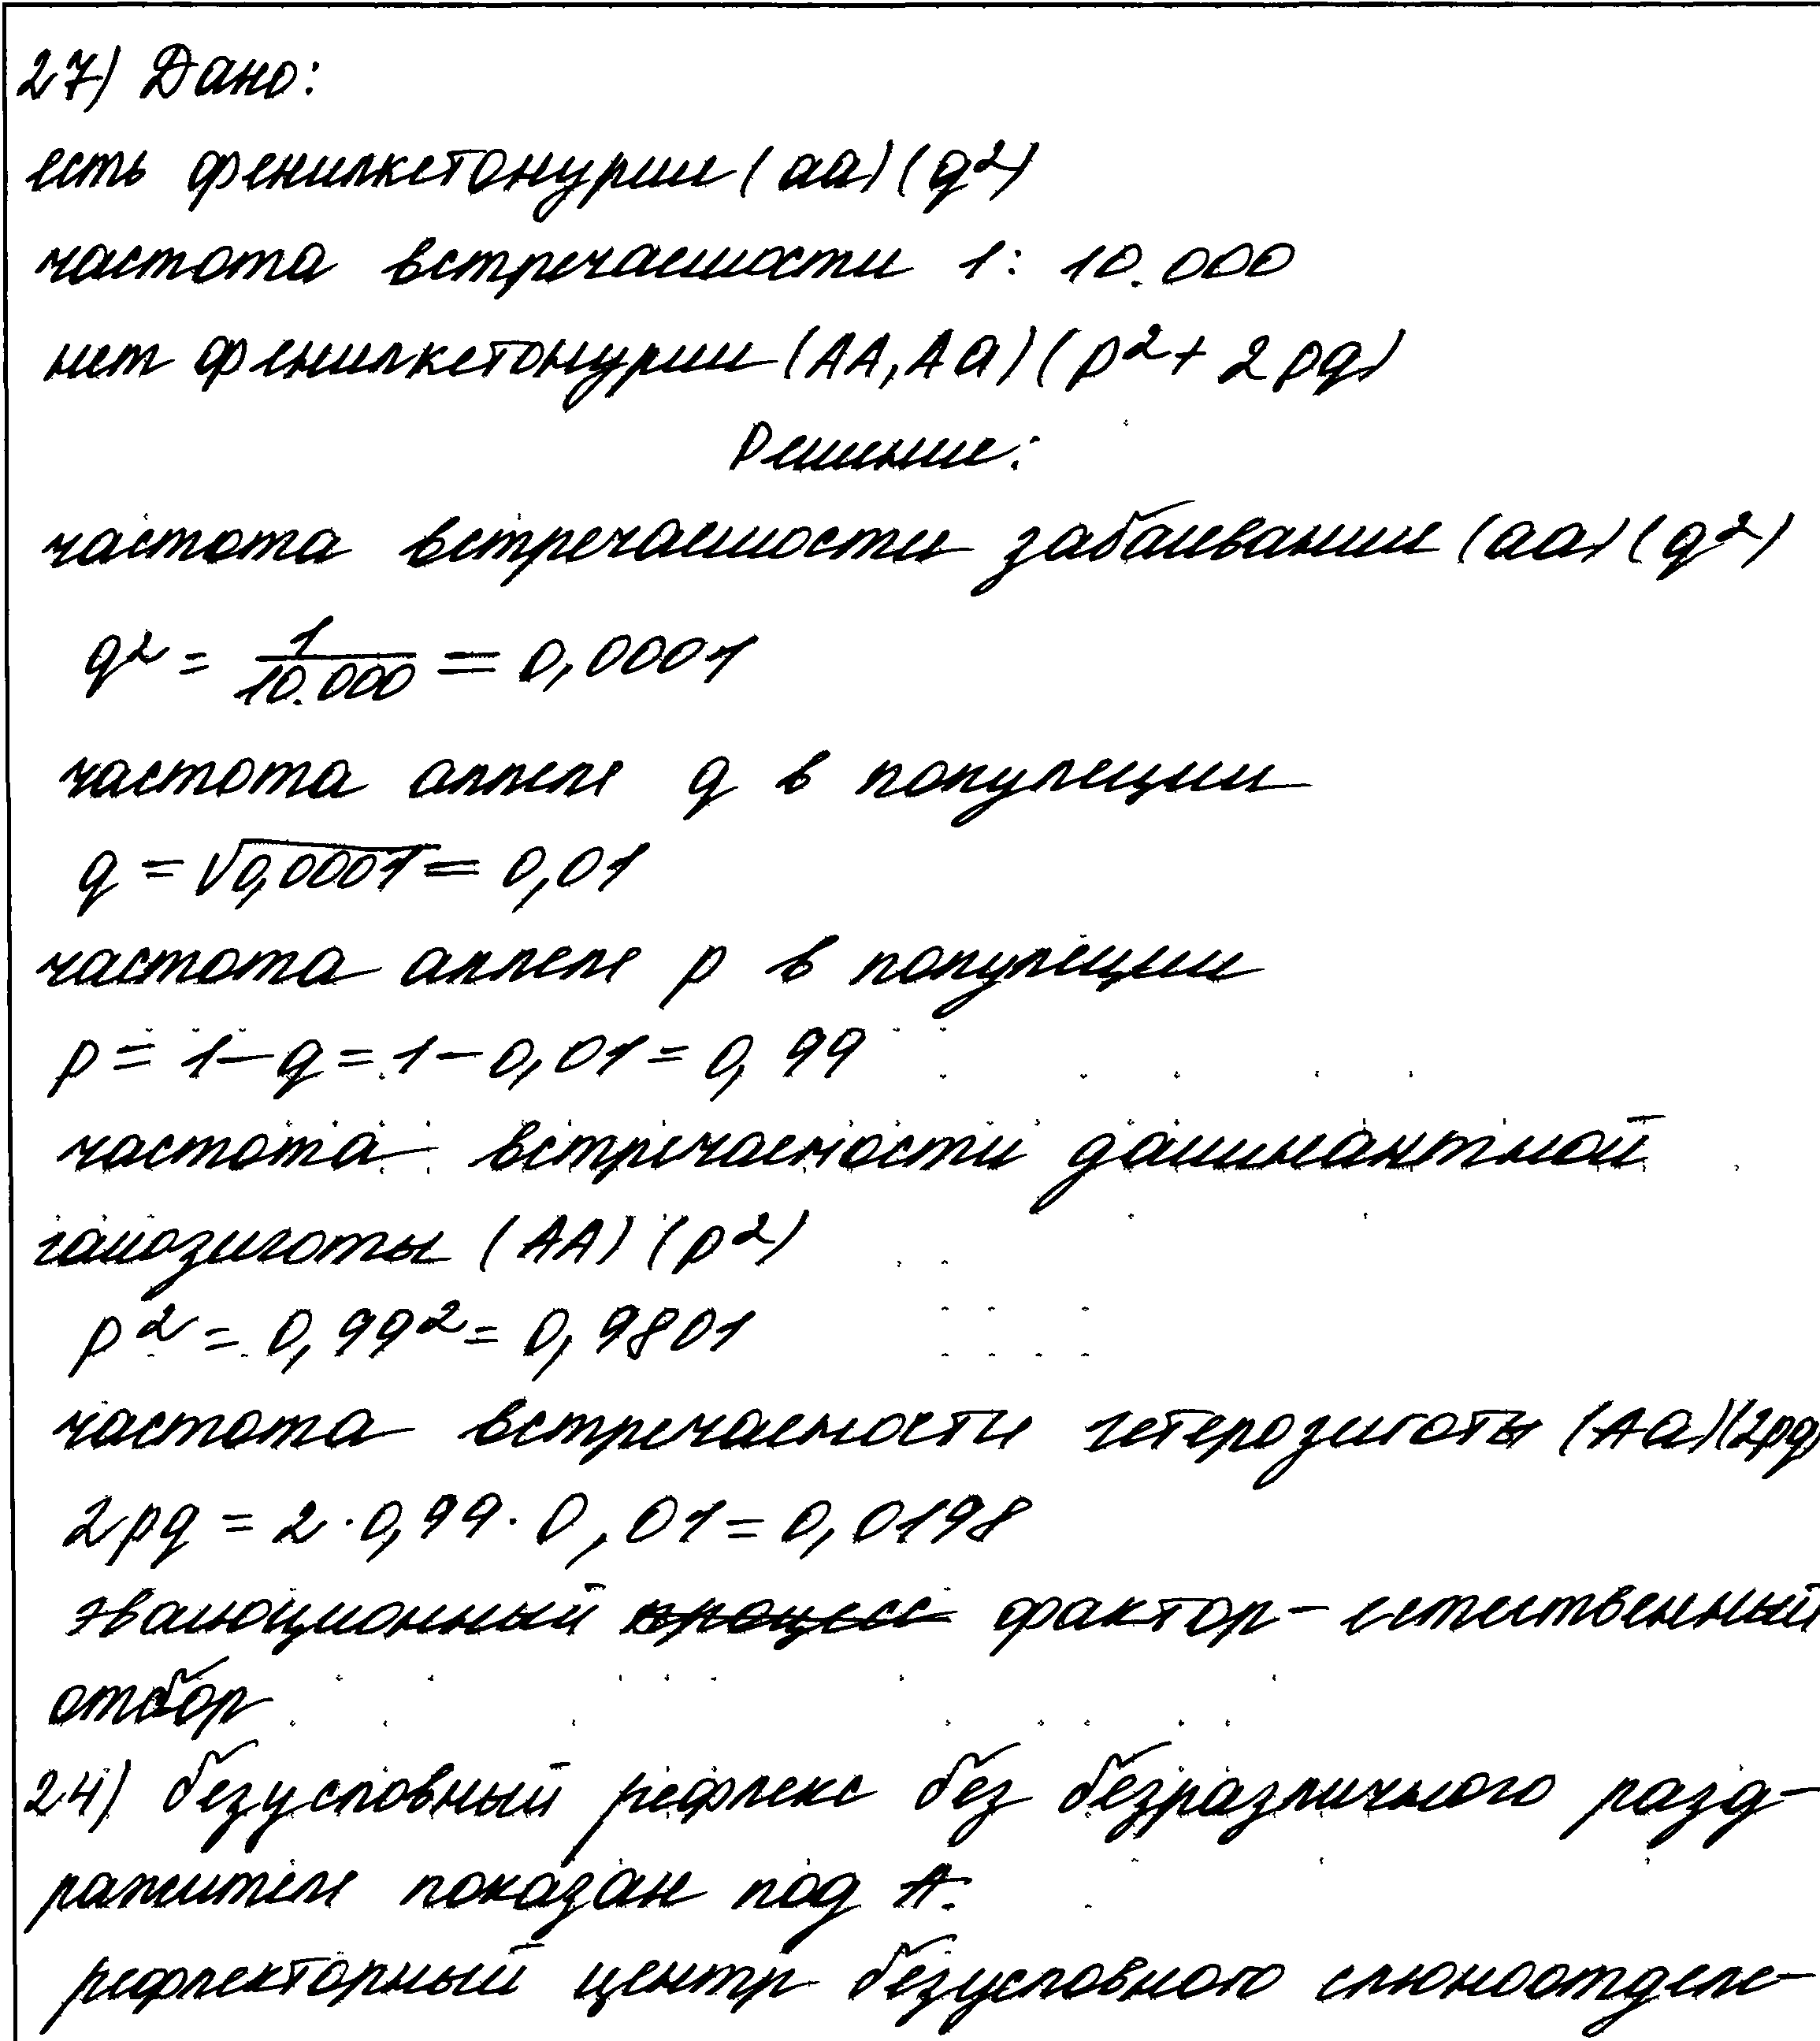 27) Дано:
есть фенилкетонурии (аа) (q²)
частота встречаемости 1: 10.000
нет фенилкетонурии (АА, Аа) (p² + 2pq)
Решение:
частота встречаемости забалевания (аа) (q²)
q² = 1/10.000 = 0,0001
частота аллеля q в популяции
q = √0,0001 = 0,01
частота аллеля p в популяции
p = 1 – q = 1 – 0,01 = 0,99
частота встречаемости доминантной
гомозиготы (АА) (p²)
p² = 0,99² = 0,9801
частота встречаемости гетерозиготы (Аа) (2pq)
2pq = 2 · 0,99 · 0,01 = 0,0198
эволюционный процесс фактор – естественный
отбор
24) безусловный рефлекс без безразличного разд-
ражителя показан под А.
рефлекторный центр безусловного слюноотделе-